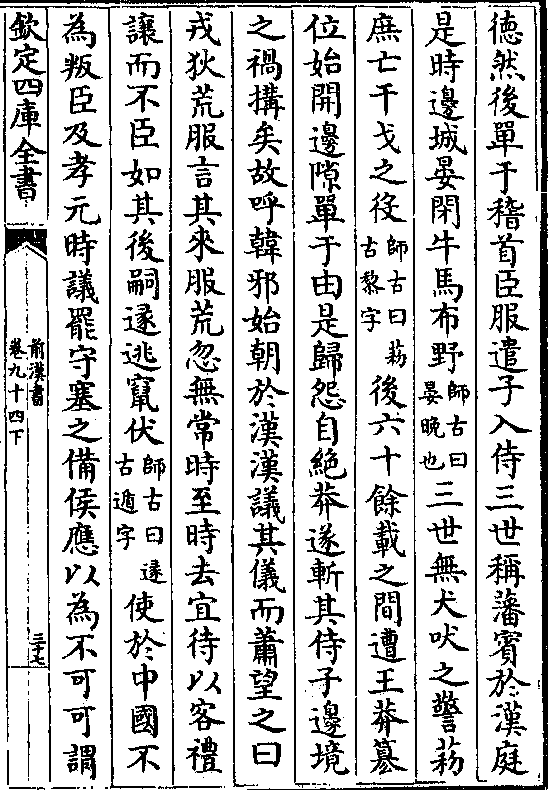 德然後單于稽首臣服遣子入侍三世稱藩賓於漢庭
是時邊城晏閉牛馬布野師古曰晏晚也三世無犬吠之警䔣
庶亡干戈之役師古曰䔣古黎字後六十餘載之間遭王莽篡
位始開邊隙單于由是歸怨自絕莽遂斬其侍子邊境
之禍搆矣故呼韓邪始朝於漢漢議其儀而蕭望之曰
戎狄荒服言其來服荒忽無常時至時去宜待以客禮
讓而不臣如其後嗣遂逃竄伏師古曰遂古遁字使於中國不
為叛臣及孝元時議罷守塞之備侯應以為不可可謂
欽定四庫全書
前漢書
卷九十四下
三十七